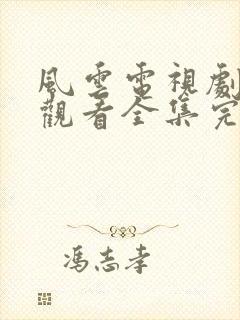 風雲電視劇
觀看全集完
馮志孝